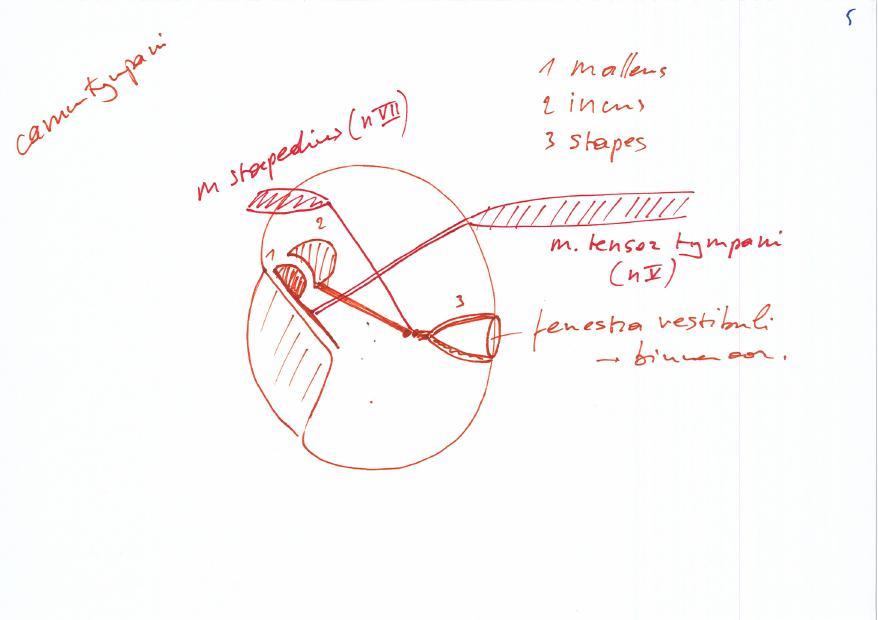 5
cavum tympani
1 malleus
2 incus
3 stapes
m stapedius (n VII)
m. tensor tympani
(n V)
2
1
3
fenestra vestibuli
→ binnenoor.